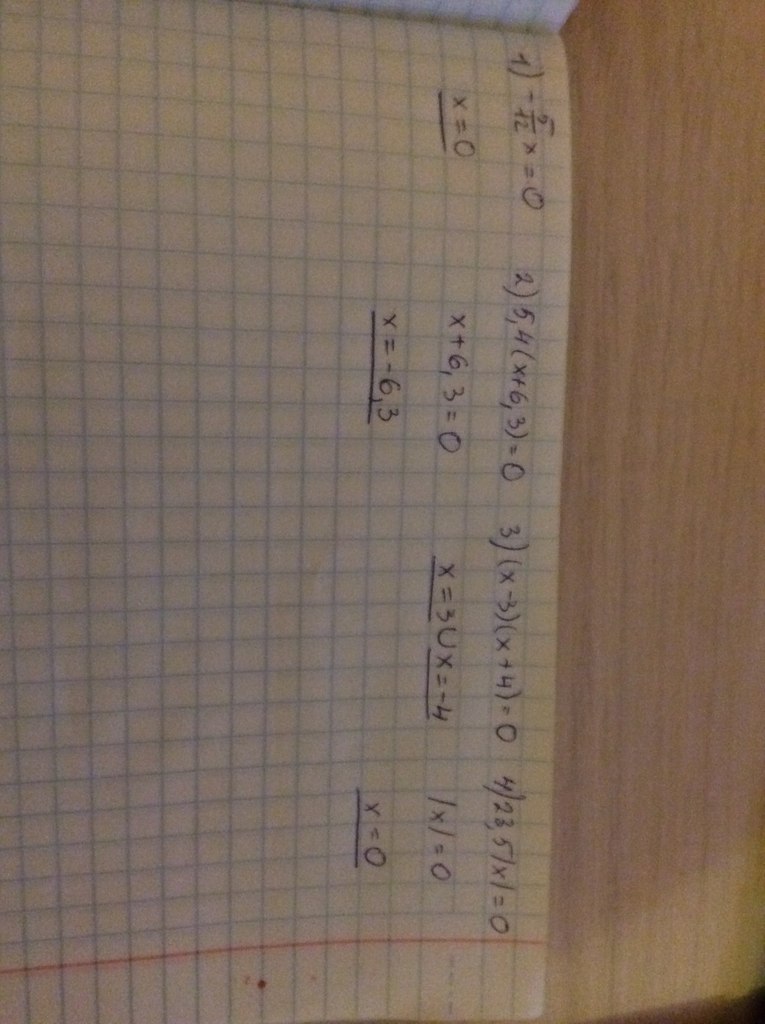 1) -5/12 x = 0
x = 0
2) 5,4(x+6,3) = 0
x+6,3 = 0
x = -6,3
3) (x-3)(x+4) = 0
x = 3 ∪ x = -4
4) 23,5|x| = 0
|x| = 0
x = 0